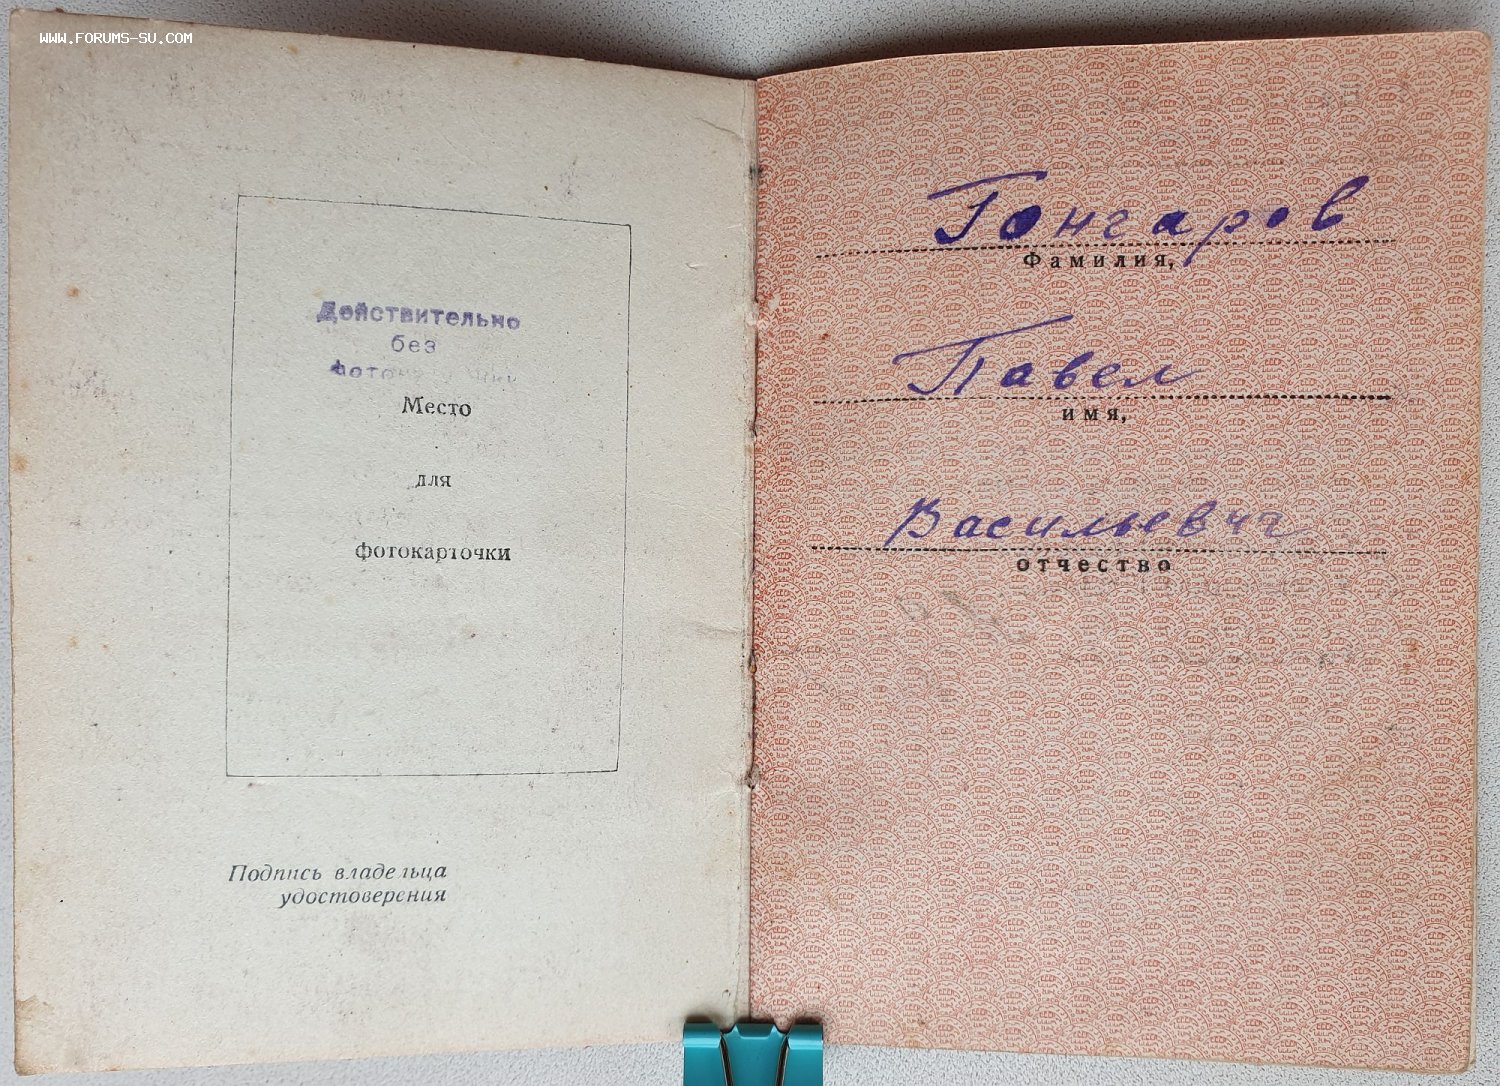 WWW.FORUMS-SU.COM
Действительно
без
Место
для
фотокарточки
Подпись владельца
удостоверения
Гончаров
Фамилия,
Павел
имя,
Васильевич
отчество